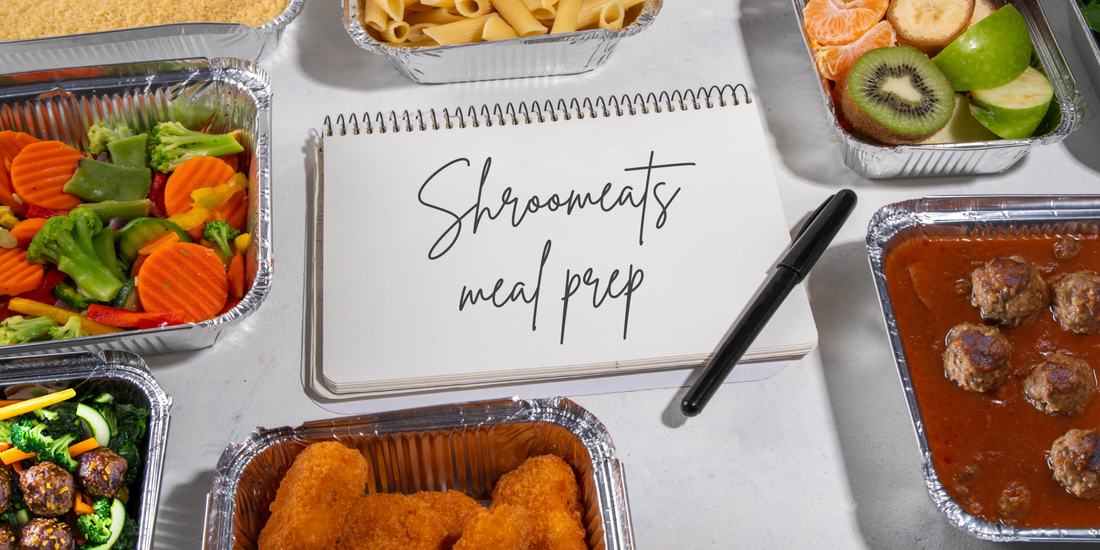 Shroomeats
meal prep